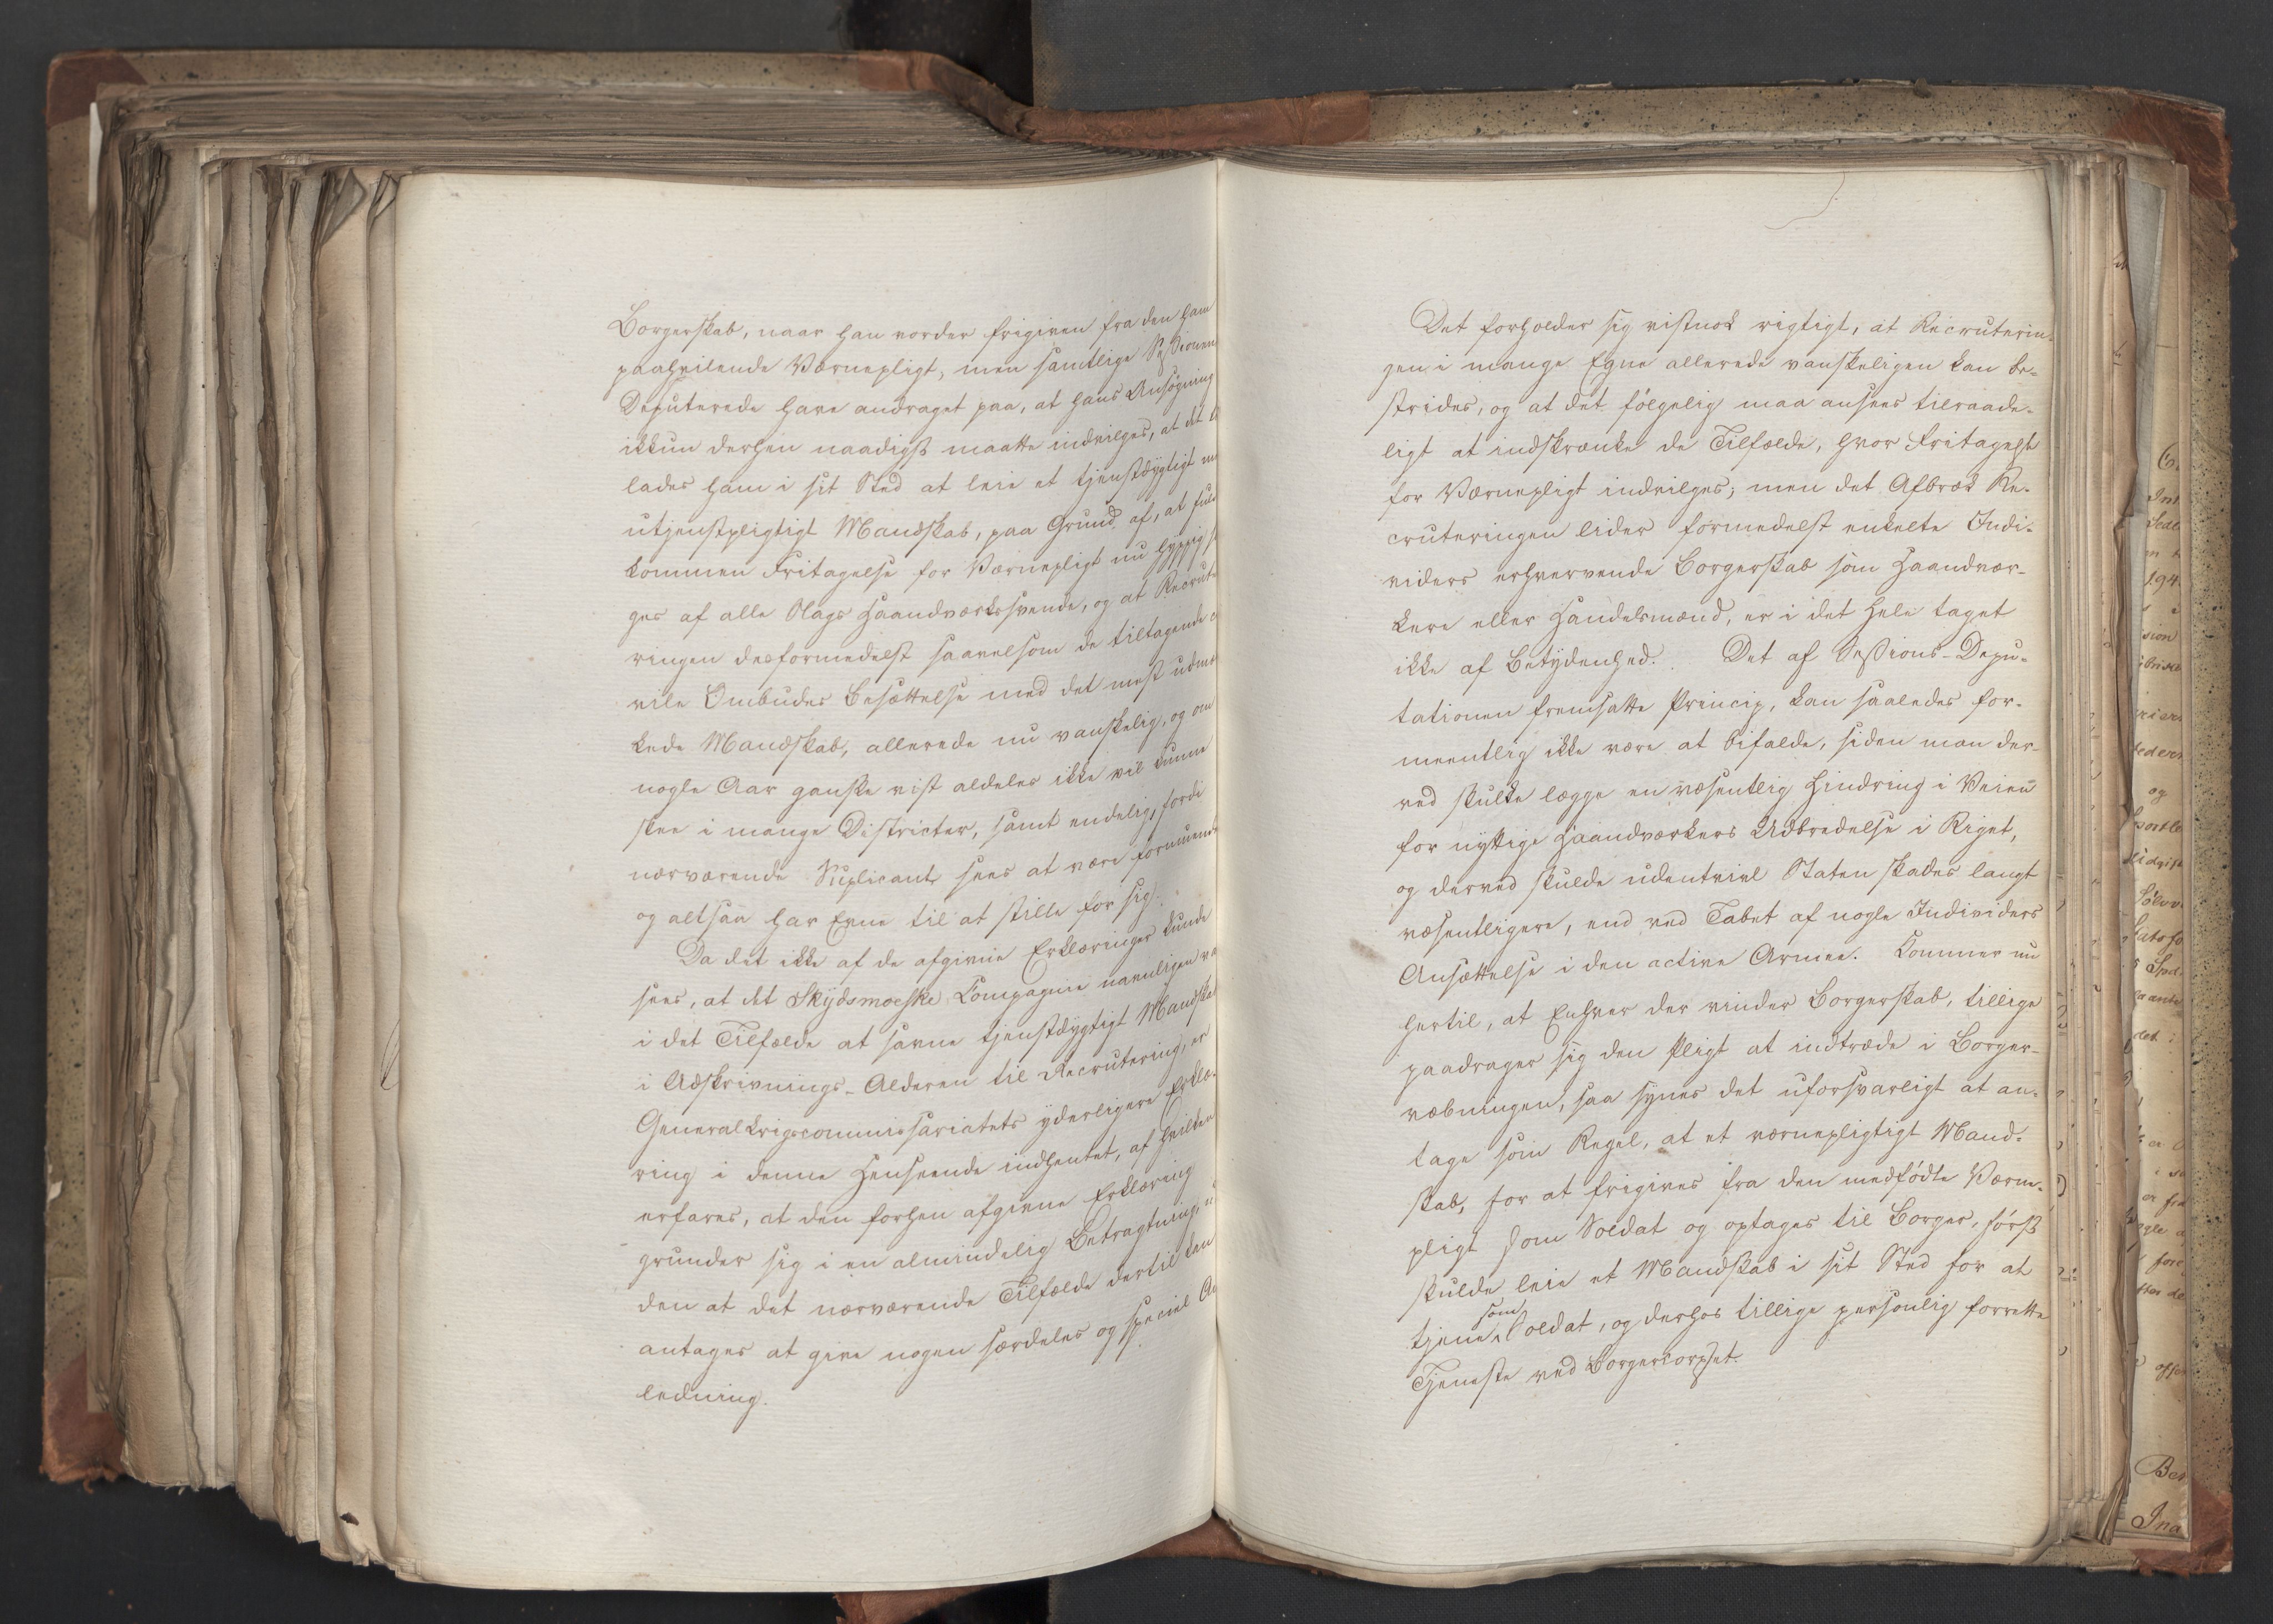 Borgerskab, naar han vorder frigiven fra den ham
paahvilende Værnepligt, men samtlige Sessionen
Deputerede have andraget paa, at hans Ansøgning
ikkun derhen naadigst maatte indvilges, at det
lades ham i sit Sted at leie et tjenstdygtigt
utjenstpligtigt Mandskab, paa Grund af, at fuld
kommen Fritagelse for Værnepligt nu hyppig
ges af alle Slags Haandværkssvende, og at Recrute
ringen desformedelst saavelsom de tiltagende
vile Ombudes Besættelse med det mest udmær
kede Mandskab, allerede nu vanskelig, og om
nogle Aar ganske vist aldeles ikke vil kunne
skee i mange Districter, samt endelig, fordi
nærværende Suplicant sees at være formuende
og altsaa har Evne til at stille for sig.
Da det ikke af de afgivne Erklæringer kunde
sees, at det Skydsmoeske Compagnie navnligen
i det Tilfælde at savne tjenstdygtigt Mandskab
i Udskrivnings-Alderen til Recrutering, er
Generalkrigscommissariatets yderligere Erklæ-
ring i denne Henseende indhentet, af hvilken
erfares, at den forhen afgivne Erklæring
grunder sig i en almindelig Betragtning,
den at det nærværende Tilfælde dertil kan
antages at give nogen særdeles og speciel
ledning.
Det forholder sig vistnok rigtigt, at Recruterin-
gen i mange Egne allerede vanskeligen kan be-
strides, og at det følgelig maa ansees tilraade-
ligt at indskrænke de Tilfælde, hvor Fritagelse
for Værnepligt indvilges; men det Afbræk Re-
cruteringen lider formedelst enkelte Indi-
viders erhvervende Borgerskab som Haandvær-
kere eller Handelsmænd, er i det Hele taget
ikke af Betydenhed. Det af Sessions-Depu-
tationen fremsatte Princip, kan saaledes for-
meentlig ikke være at bifalde, siden man der-
ved skulde lægge en væsentlig Hindring i Veien
for nyttige Haandværkers Udbredelse i Riget,
og derved skulde udentvivl Staten skades langt
væsentligere, end ved Tabet af nogle Individers
Ansættelse i den active Armee. Kommer nu
hertil, at Enhver der vinder Borgerskab, tillige
paadrager sig den Pligt at indtræde i Borger-
væbningen, saa synes det uforsvarligt at an-
tage som Regel, at et værnepligtigt Mand-
skab, for at frigives fra den medfødte Værne-
pligt som Soldat og optages til Borger, først
skulde leie et Mandskab i sit Sted for at
tjene som Soldat, og derhos tillige personlig forrette
Tjeneste ved Borgercorpset.